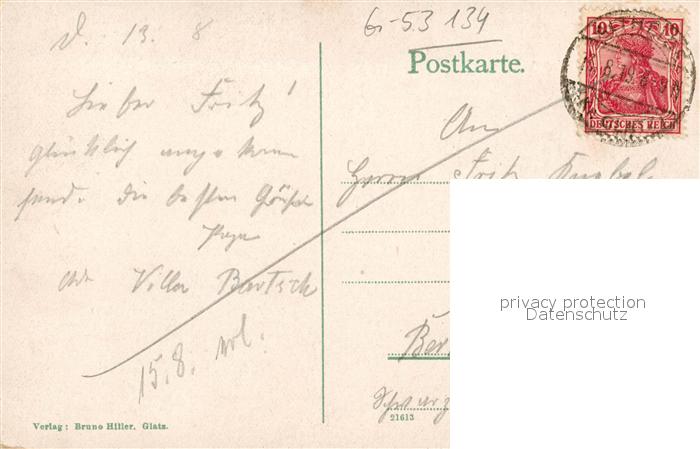 d. 13. 8
Lieber Fritz!
glücklich angekom
send. die besten Grüße
Papa
Villa Bartsch
15. 8.
Verlag: Bruno Hiller, Glatz.
G-53 134
Postkarte.
An
Herrn Fritz
Ber
Schwarz
21613
10 10
DEUTSCHES REICH
privacy protection
Datenschutz